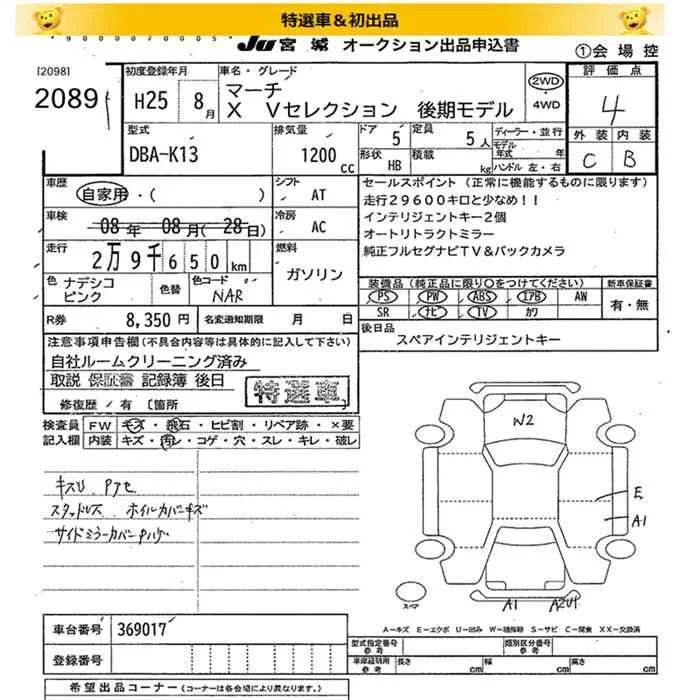 特選車＆初出品
Ju 宮城 オークション出品申込書
①会場控
[2098]
2089
初度登録年月
H25 8月
車名・グレード
マーチ
X Vセレクション 後期モデル
2WD
・4WD
評価点
4
外装 内装
C B
型式
DBA-K13
排気量
1200cc
ドア 5
定員 5人
形状 HB
積載 kg
ディーラー・並行
モデル年式 年
ハンドル 左・右
車歴
自家用・( )
シフト
AT
車検
08年 08月(28日)
冷房
AC
走行
2万9千650km
燃料
ガソリン
色 ナデシコピンク
色替
色コード
NAR
R券 8,350円
名変通知期限 月 日
セールスポイント (正常に機能するものに限ります)
走行29600キロと少なめ！！
インテリジェントキー2個
オートリトラクトミラー
純正フルセグナビTV＆バックカメラ
装備品 (純正品に限り○をつけてください)
PS PW ABS エアB AW
SR ナビ TV カワ
新車保証書
有・無
後日品
スペアインテリジェントキー
注意事項申告欄 (不具合内容等は具体的に記入して下さい)
自社ルームクリーニング済み
取説 保証書 記録簿 後日
特選車
修復歴 / 有 〔箇所
検査員記入欄
FW キズ・飛石・ヒビ割・リペア跡・×要
内装 キズ・汚レ・コゲ・穴・スレ・キレ・破レ
キスU Pアセ
スタッドレス ホイルカバーキズ
サイドミラーカバーPハゲ
W2
E
A1
スペア
A1 A2U1
A－キズ E－エクボ U－凹み W－補修跡 S－サビ C－腐食 XX－交換済
車台番号 369017
登録番号
型式指定番号 参考
類別区分番号 参考
車庫証明用 参考
長さ cm
幅 cm
高さ cm
希望出品コーナー (コーナーは各会場により異なります。)